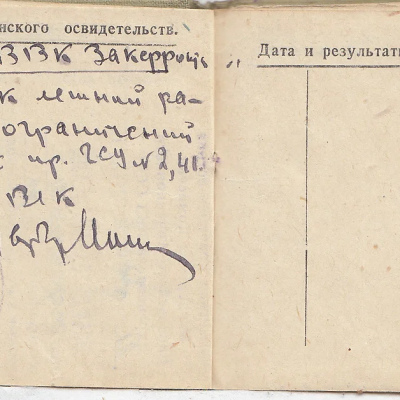 нского освидетельств.
ВВК Закерронт
к летной ра-
ограничений
пр. ГСУ №2, 41.
ВЛК
Дата и результат